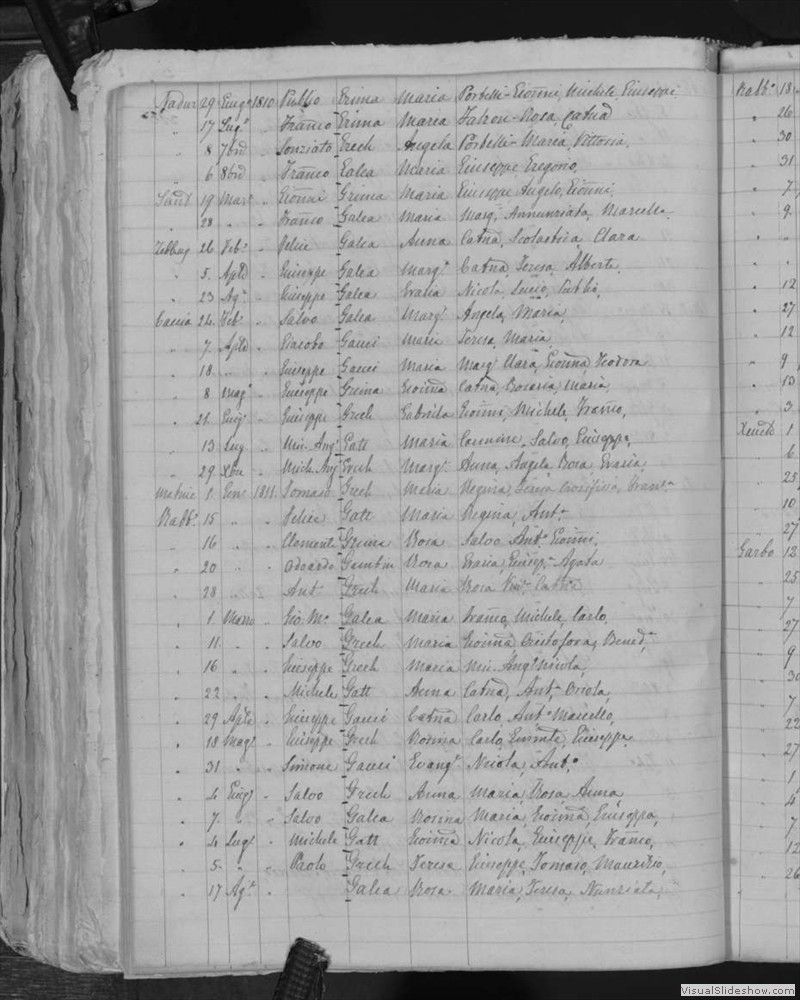 Nadur 29 Giug.o 1810 Publio Grima Maria Portelli - Gioñni, Michele, Giuseppe
" 17 Lug.o " Franco Grima Maria Falzon - Rosa, Catna
" 8 7bre " Nonziato Grech Angela Portelli - Maria, Vittoria,
" 6 8bre " Franco Galea Maria Giuseppe Gregorio,
Sant 19 Marz " Gioñni Grima Maria Giuseppe Angelo, Gioñni,
" 28 " " Franco Galea Maria Marg.a Annunziata, Marcello
Zebbug 26 Feb.o " Felice Galea Anna Catna, Scolastica, Clara
" 5 Aple " Giuseppe Galea Marg.a Catna, Teresa, Alberta,
" 23 Ag.o " Giuseppe Galea Evasia Nicola, Lucio, Publio,
Caccia 24 Feb.o " Salvo Galea Marg.a Angela, Maria,
" 7 Aple " Giacobo Gauci Maria Teresa, Maria,
" 18 " " Giuseppe Gauci Maria Marg.a Clara, Gioñna Teodora
" 8 Mag.o " Giuseppe Grima Gioñna Catna, Rosaria, Maria,
" 21 Giug.o " Giuseppe Grech Gabriela Gioñni, Michele, Franco,
" 13 Lug " Mic. Ang.o Gatt Maria Salvo, Giuseppe,
" 29 Xbre " Mich. Ang.o Grech Marg.a Anna, Angela Rosa Evasia,
Matrice 1 Gen.o 1811 Tomaso Grech Maria Regina, Teresa Crocifissa, Fran.ca
Rabb.o 15 " " Felice Gatt Maria Regina, Ant.a
" 16 " " Clemente Grima Rosa Salvo Ant.o Gioñni,
" 20 " " Odoardo Gambin Rosa Evasia, Giusep.a Agata
" 28 " " Ant.o Grech Maria Rosa
" 1 Marzo " Gio. M.a Galea Maria Franco, Michele, Carlo,
" 11 " " Salvo Grech Maria Gioñna, Cristofora, Bened.a
" 16 " " Giuseppe Grech Maria Mic. Ang.o Nicola,
" 22 " " Michele Gatt Anna Catna, Ant.a
" 29 Aple " Giuseppe Gauci Catna Carlo, Ant.o Marcello,
" 18 Mag.o " Giuseppe Grech Rosina Carlo, Giuseppe,
" 31 " " Simone Gauci Evang.a Nicola, Ant.o
" 4 Giug.o " Salvo Grech Anna Maria, Rosa, Anna,
" 7 " " Salvo Galea Rosina Maria, Gioñna, Giuseppa,
" 4 Lug.o " Michele Gatt Gioñna Nicola, Giuseppe, Franco,
" 5 " " Paolo Grech Teresa Giuseppe, Tomaso, Maurizio,
" 17 Ag.o " Galea Rosa Maria, Teresa, Nunziata,
Rabb.o 18
" 26
" 30
" 31
" 7
" 9
" "
" 12
" 27
" 12
" 9
" 13
" 3
1
" 6
" 25
" 10
" 27
Garbo 12
" 25
" 7
" 27
" 9
" 30
" 7
" 22
" 27
" 1
" 4
" 7
" 12
" 26
VisualSlideshow.com